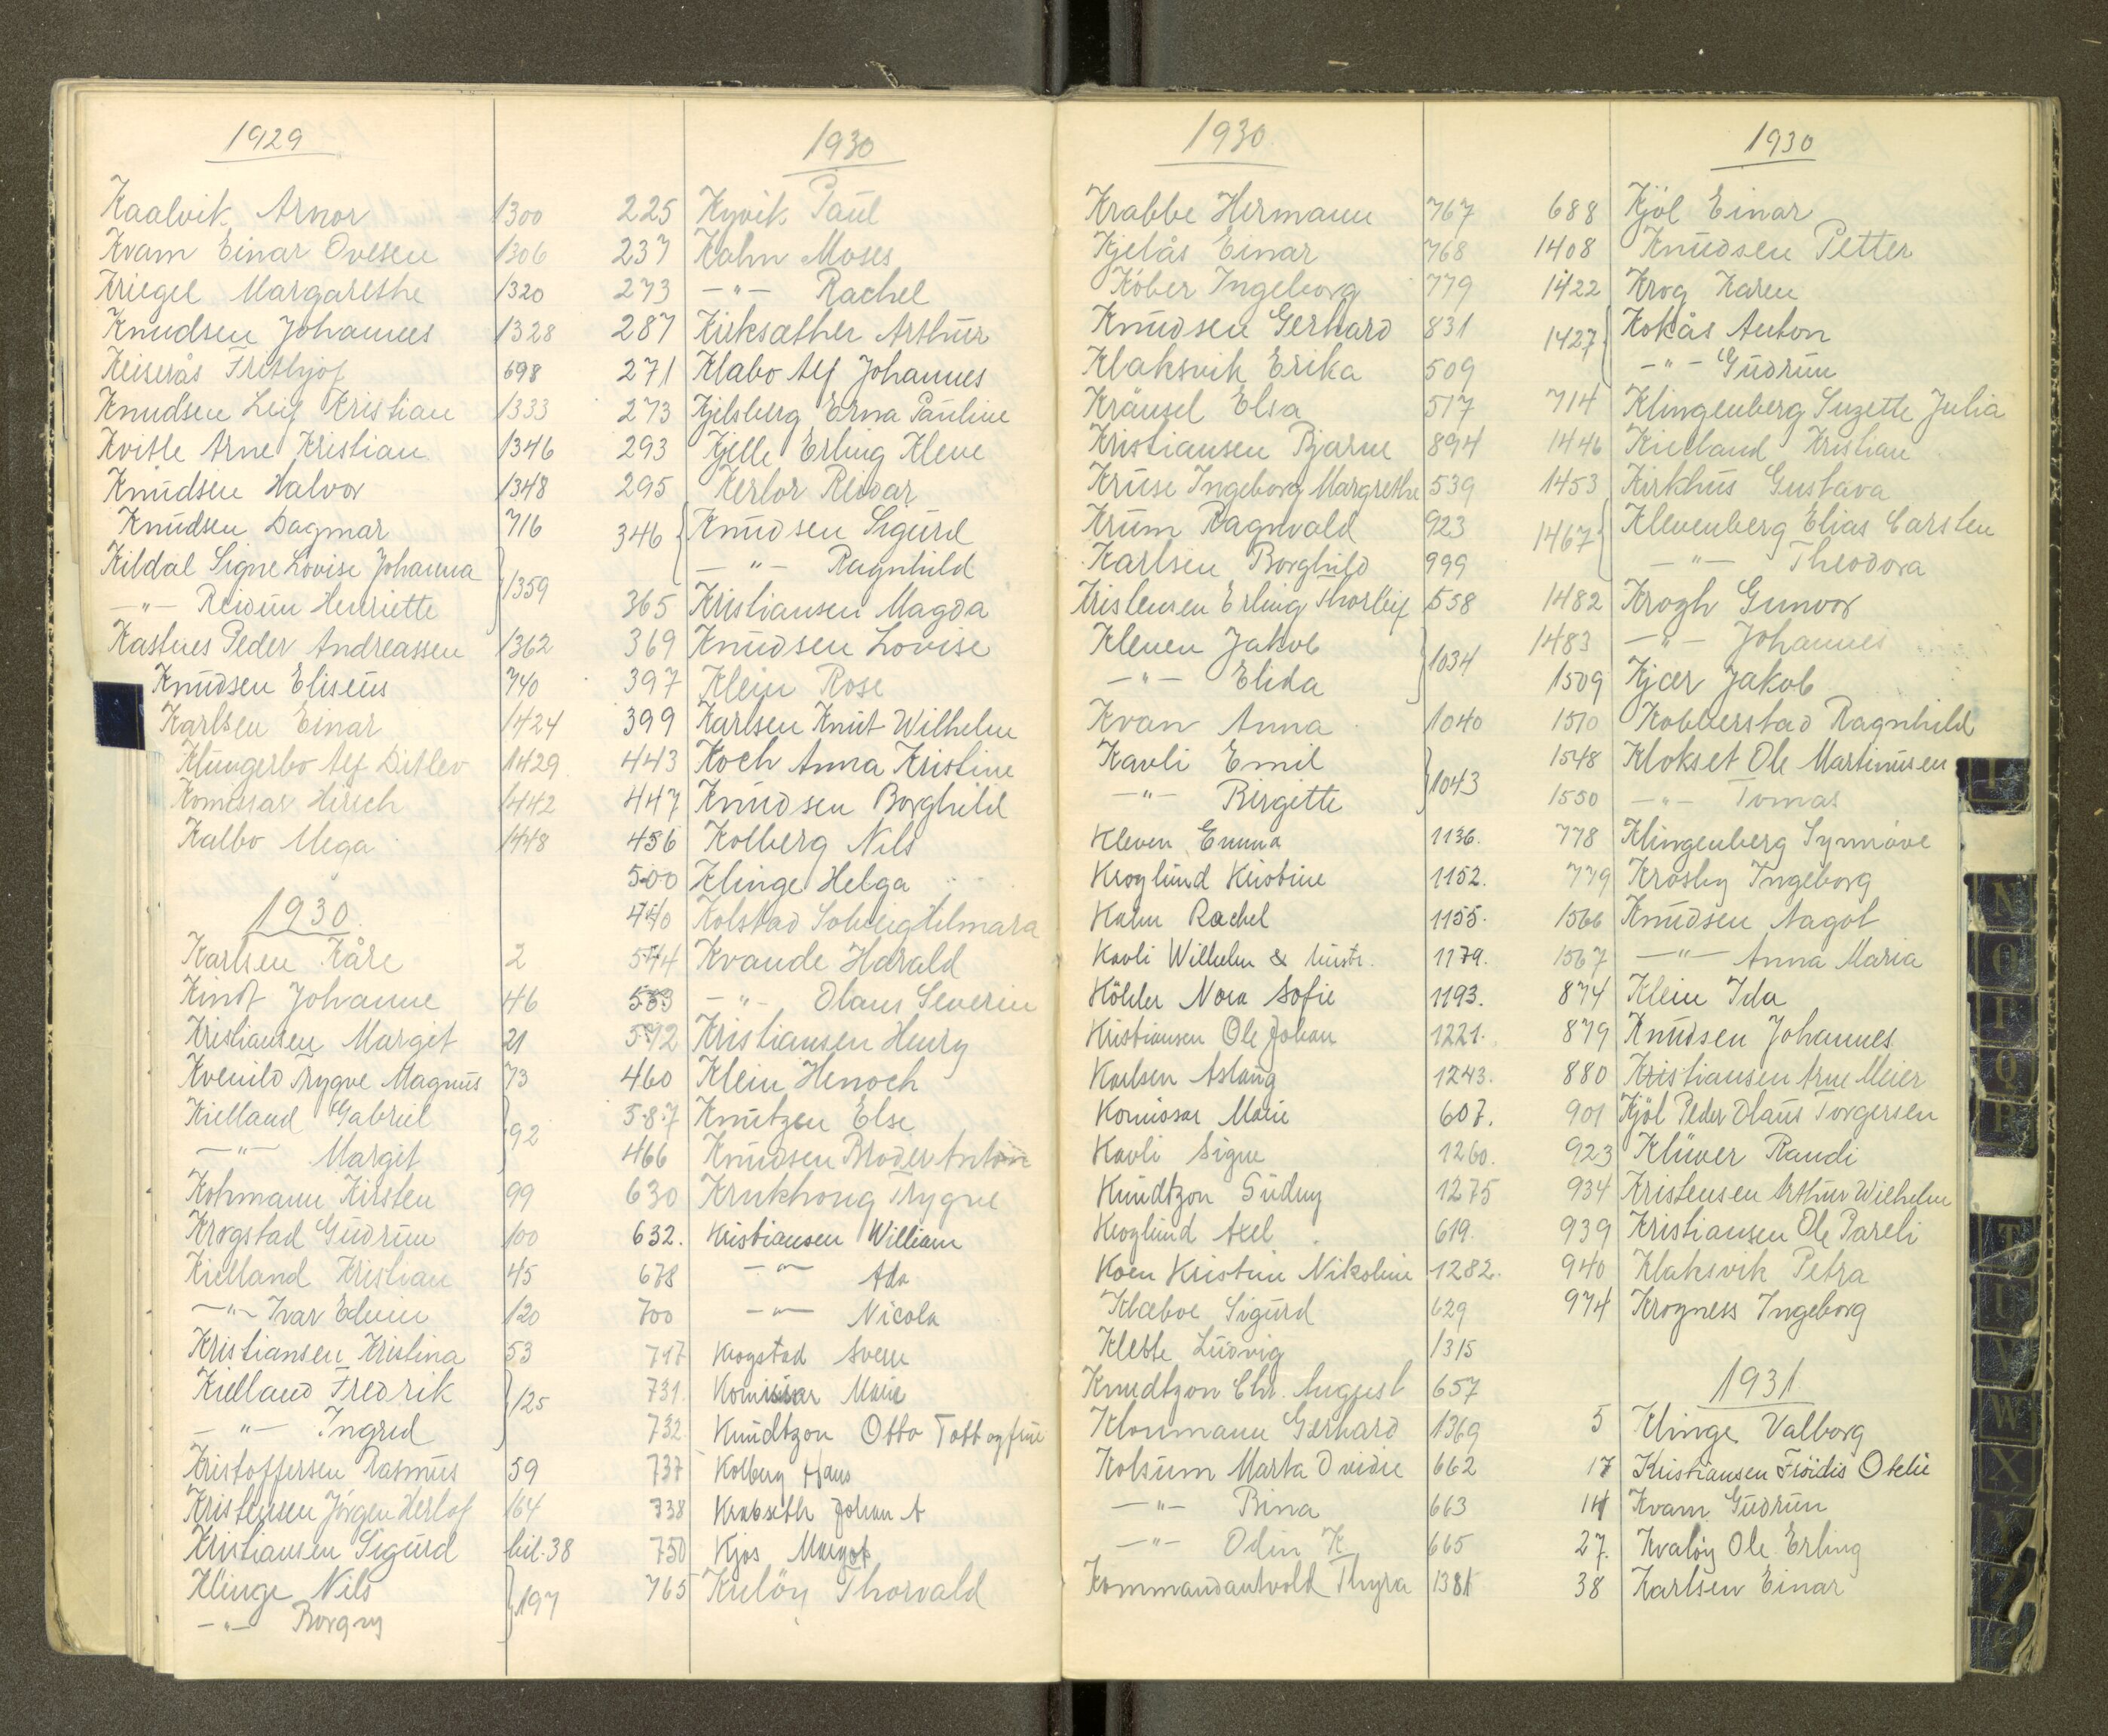 1929
Kaalvik Arnor 1300
Kvam Einar Ovesen 1306
Kriegel Margarethe 1320
Knudsen Johannes 1328
Keiserås Frithjof 698
Knudsen Leif Kristian 1333
Kvitle Arne Kristian 1346
Knudsen Halvor 1348
Knudsen Dagmar 716
Kildal Signe Lovise Johanna
—"— Reidun Henriette 1359
Kastnes Peder Andreassen 1362
Knudsen Eliseus 740
Karlsen Einar 1424
Klungerbo Alf Ditlev 1429
Komissar Hirsch 1442
Kalbo Mega 1448
1930.
Karlsen Kåre 2
Kindt Johanne 46
Kristiansen Margit 21
Kvenild Trygve Magnus 73
Kielland Gabriel
—"— Margit 92
Kohmann Kirsten 99
Krogstad Gudrun 100
Kielland Kristian 45
—"— Ivar Edvin 120
Kristiansen Kristina 53
Kielland Fredrik
—"— Ingrid 125
Kristoffersen Rasmus 59
Kristensen Jörgen Herlof 164
Kristiansen Sigurd bil. 38
Klinge Nils
—"— Borgny 197
1930
225 Kyvik Paul
237 Kahn Moses
273 —"— Rachel
287 Kirksæther Arthur
271 Klabo Alf Johannes
273 Kjelsberg Erna Pauline
293 Kjelle Erling Kleve
295 Kerlor Reidar
346 Knudsen Sigurd
—"— Ragnhild
365 Kristiansen Magda
369 Knudsen Lovise
397 Klein Rose
399 Karlsen Knut Wilhelm
443 Koch Anna Kristine
447 Knudsen Borghild
456 Kolberg Nils
500 Klinge Helga
Kolstad Solveig Hilmara
544 Kvande Harald
—"— Olaus Severin
592 Kristiansen Henry
460 Klein Henoch
587 Knutzen Else
466 Knudsen Broder Anton
630 Krukhoug Trygve
632. Kristiansen William
678 —"— Ada
700 —"— Nicola
717 Krogstad Sverre
731. Komissar Marie
732 Knudtzon Otto Tott og frue
737 Kolberg Hans
738 Krabseth Johan A
750 Kjos Margot
765 Kulöy Thorvald
1930.
Krabbe Hermann 767
Kjelås Einar 768
Köber Ingeborg 779
Knudsen Gerhard 831
Klaksvik Erika 509
Kräusel Elsa 517
Kristiansen Bjarne 894
Kruse Ingeborg Margrethe 539
Krum Ragnvald 923
Karlsen Borghild 999
Kristensen Erling Thorleif 558
Kleven Jakob
—"— Elida 1034
Kvan Anna 1040
Kavli Emil
—"— Birgitte 1043
Kleven Emma 1136.
Kroglund Kristine 1152.
Kahn Rachel 1155.
Kavli Wilhelm & hustr. 1179.
Köhler Nora Sofie 1193.
Kristiansen Ole Johan 1221.
Karlsen Aslaug 1243.
Komissar Marie 607.
Kavli Signe 1260.
Knudtzon Gudny 1275
Kroglund Axel 619.
Koen Kristine Nikoline 1282.
Klæboe Sigurd 629
Klette Ludvig 1315
Knudtzon Chr. August 657
Klonmann Gerhard 1369
Kolsum Marta Ovidie 662
—"— Bina 663
—"— Odin K. 665
Kommandantvold Thyra 1381
1930
688 Kjöl Einar
1408 Knudsen Petter
1422 Krog Karen
1427 Kokås Anton
—"— Gudrun
714 Klingenberg Suzette Julia
1446 Kielland Kristian
1453 Kirkhus Gustava
1467 Klevenberg Elias Carsten
—"— Theodora
1482 Krogh Gunvor
1483 —"— Johannes
1509 Kjær Jakob
1510 Kobberstad Ragnhild
1548 Klokset Ole Martinusen
1550 —"— Tomas
778 Klingenberg Synnöve
779 Krosby Ingeborg
1566 Knudsen Aagot
1567 —"— Anna Maria
874 Klein Ida
879 Knudsen Johannes
880 Kristiansen Arne Meier
901 Kjöl Peder Olaus Torgersen
923 Klüwer Randi
934 Kristensen Arthur Wilhelm
939 Kristiansen Ole Pareli
940 Klaksvik Petra
974 Krogness Ingeborg
1931
5 Klinge Valborg
17 Kristiansen Fröidis Otelie
14 Kvam Gudrun
27. Kvalöy Ole Erling
38 Karlsen Einar
I
N
O
Q
P
T
U
V
W
X
Y